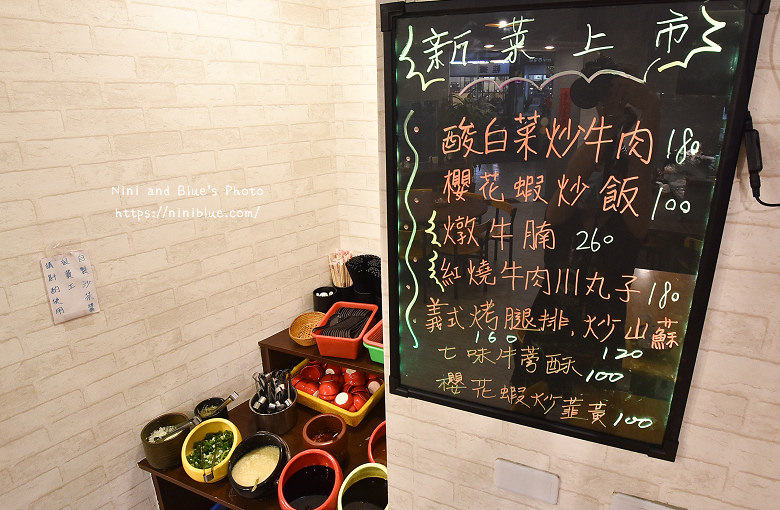 新菜上市
酸白菜炒牛肉 180
櫻花蝦炒飯 100
燉牛腩 260
紅燒牛肉川丸子 180
義式烤腿排, 炒山蘇
160 120
七味牛蒡酥 100
櫻花蝦炒韮黃 100
Nini and Blue's Photo
https://niniblue.com/
自製沙茶醬
員工
請斟酌使用